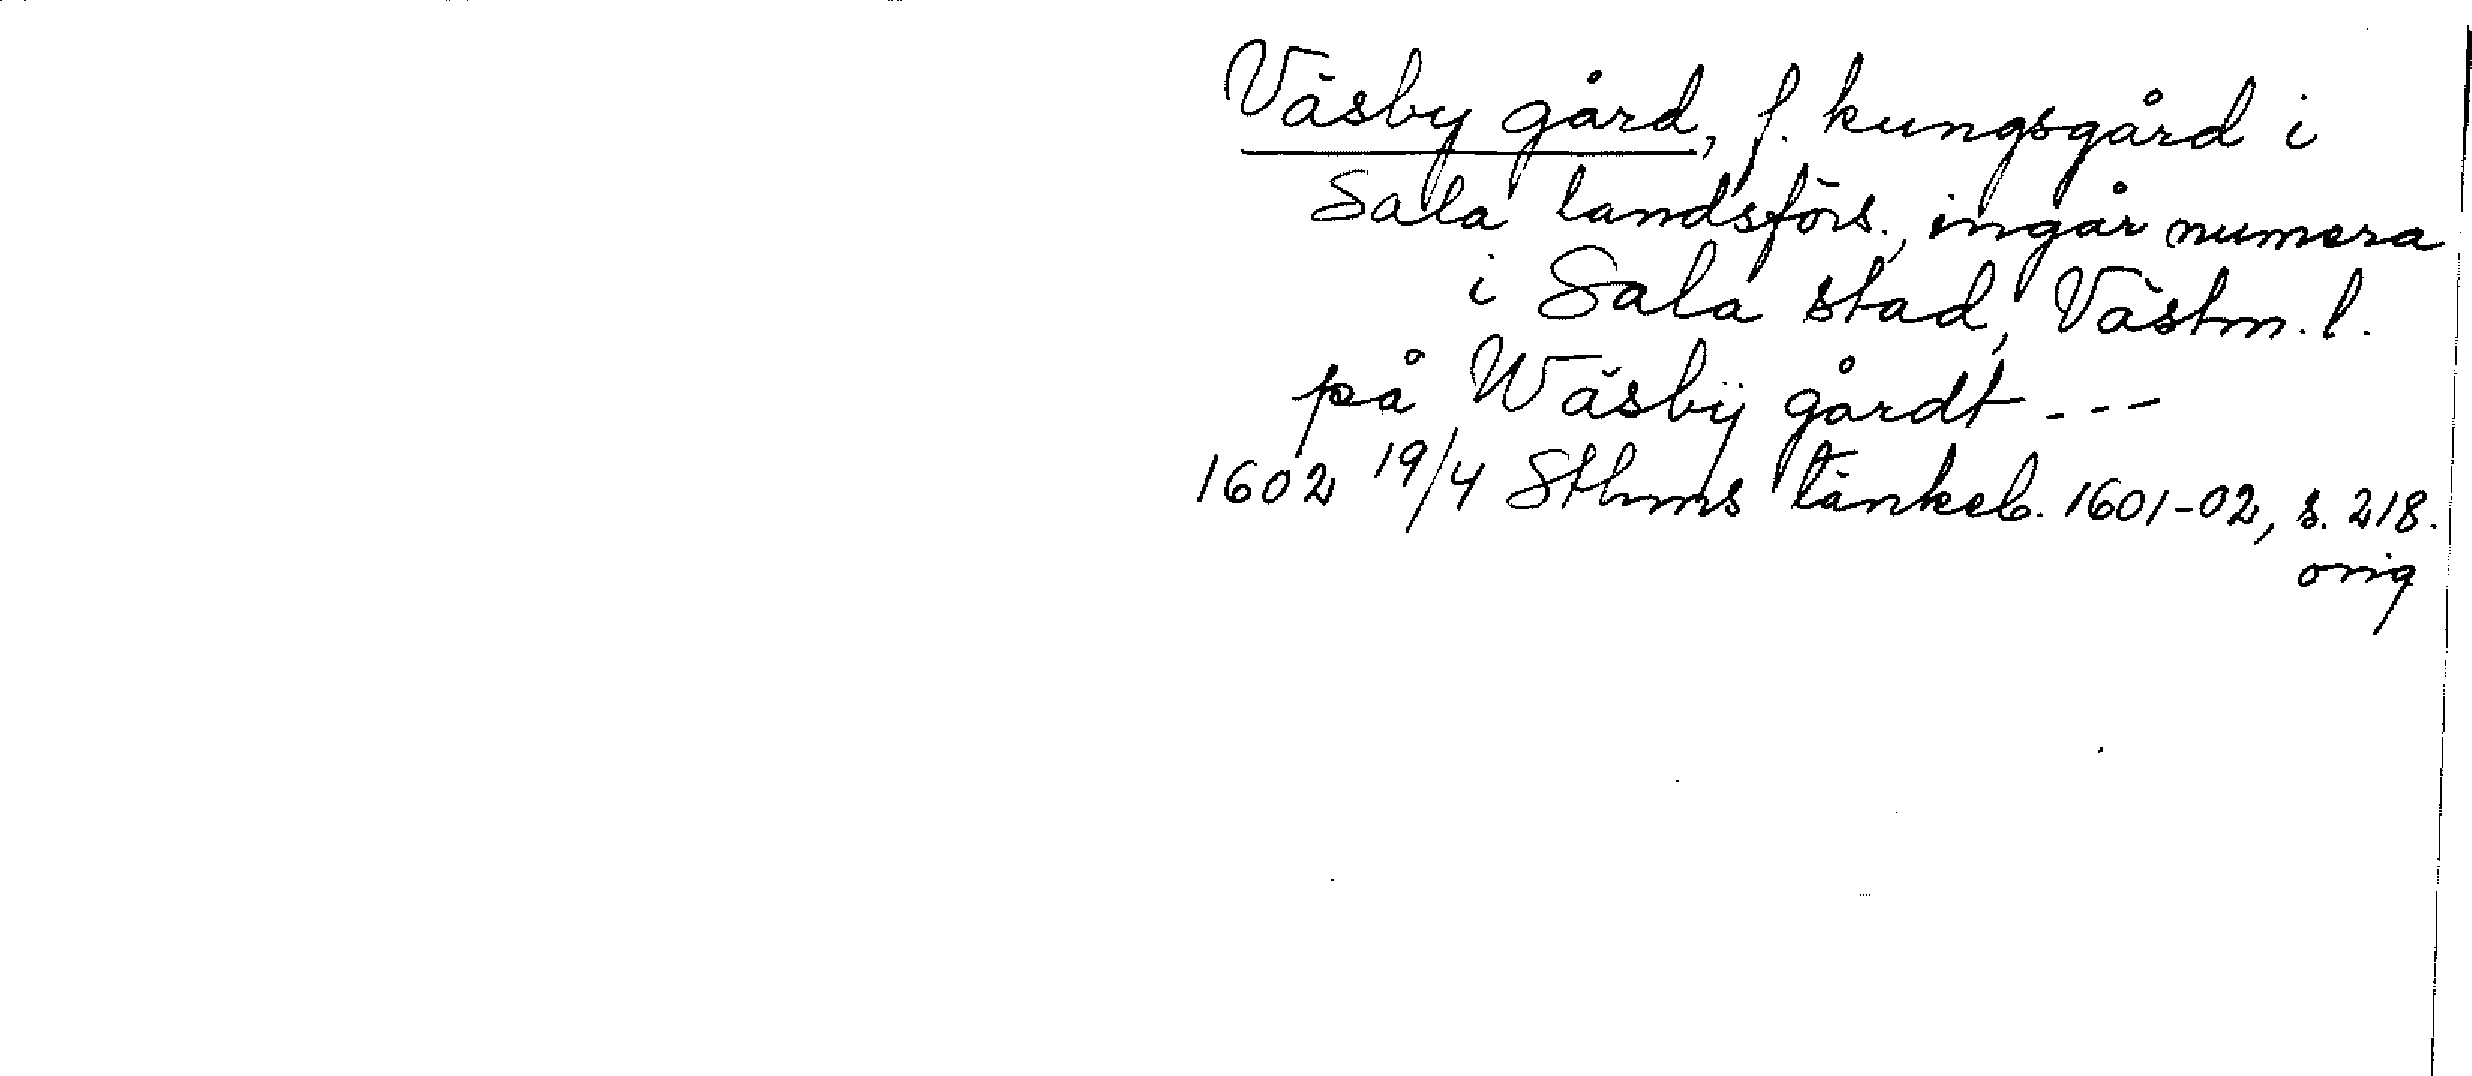 Väsby gård, f. kungsgård i
Sala landsförs., ingår numera
i Sala stad, Västm. l.
på Wäsbÿ gårdt ---
1602 19/4 Sthms tänkeb. 1601-02, s. 218.
orig